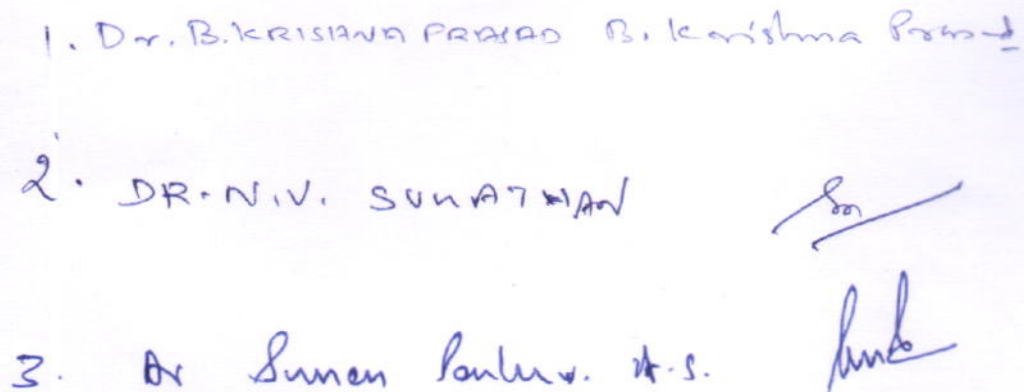 1. Dr. B. KRISHNA PRASAD B. Krishna Prasad
2. DR. N.V. SUKATHAN
3. Dr Suman A.S.